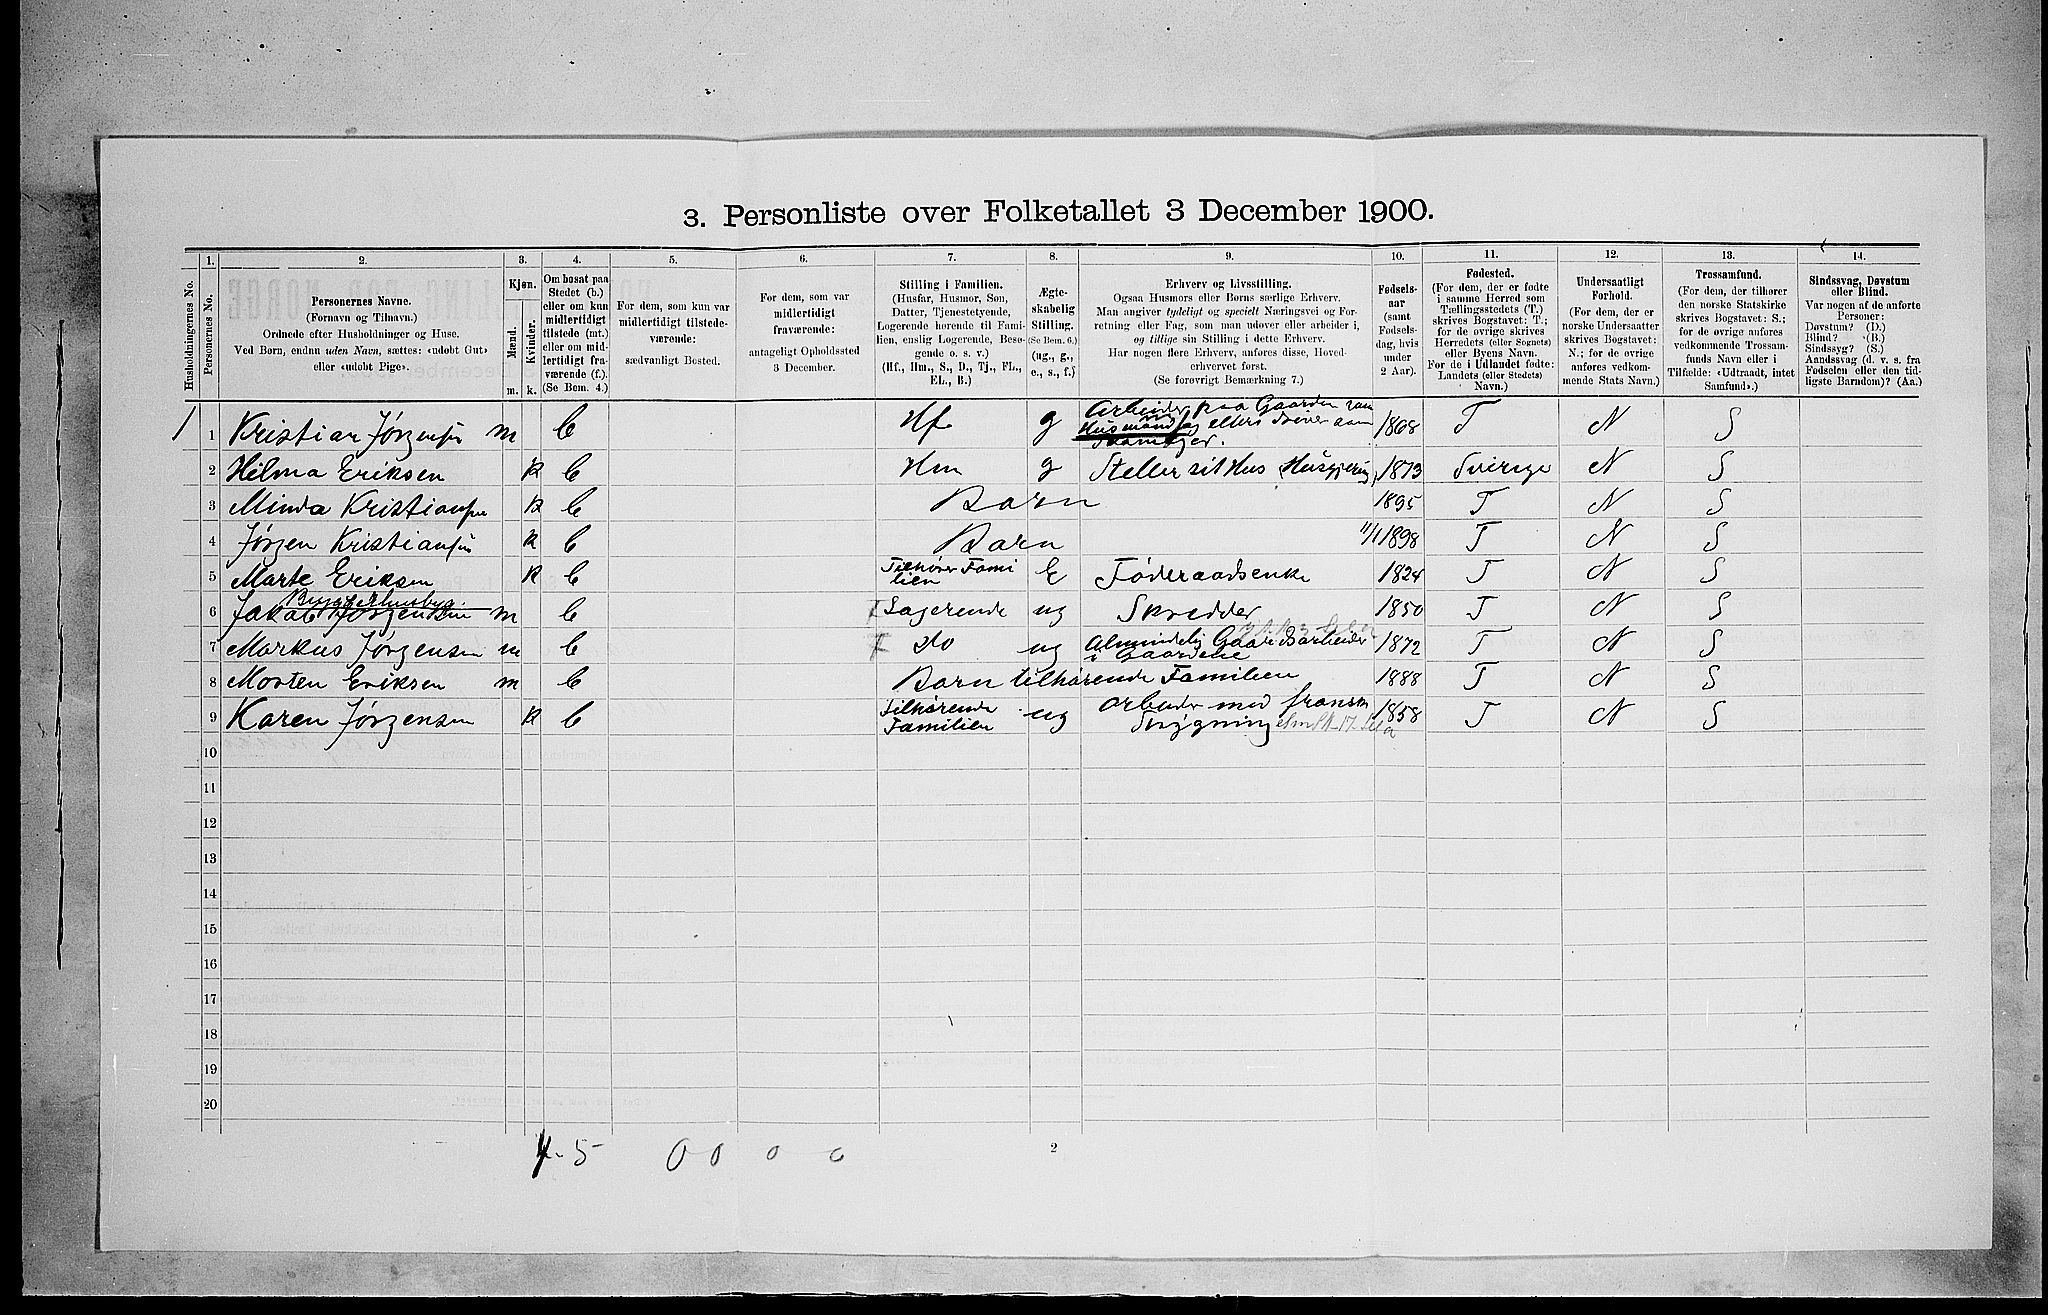 3. Personliste over Folketallet 3 December 1900.
1. 2. 3. 4. 5. 6. 7. 8. 9. 10. 11. 12. 13. 14.
Husholdningernes No.
Personernes No.
Personernes Navne.
(Fornavn og Tilnavn.)
Ordnede efter Husholdninger og Huse.
Ved Børn, endnu uden Navn, sættes: «udøbt Gut»
eller «udøbt Pige».
Kjøn.
Mænd.
Kvinder.
m. k.
Om bosat paa
Stedet (b.)
eller om kun
midlertidigt
tilstede (mt.)
eller om mid-
lertidigt fra-
værende (f.).
(Se Bem. 4.)
For dem, som kun var
midlertidigt tilstede-
værende:
sædvanligt Bosted.
For dem, som var
midlertidigt
fraværende:
antageligt Opholdssted
3 December.
Stilling i Familien.
(Husfar, Husmor, Søn,
Datter, Tjenestetyende,
Logerende hørende til Fami-
lien, enslig Logerende, Besø-
gende o. s. v.)
(Hf., Hm., S., D., Tj., FL.,
EL., B.)
Ægte-
skabelig
Stilling.
(Se Bem. 6.)
(ug., g.,
e., s., f.)
Erhverv og Livsstilling.
Ogsaa Husmors eller Børns særlige Erhverv.
Man angiver tydeligt og specielt Næringsvei og For-
retning eller Fag, som man udøver eller arbeider i,
og tillige sin Stilling i dette Erhverv.
Har nogen flere Erhverv, anføres disse, Hoved-
erhvervet først.
(Se forøvrigt Bemærkning 7.)
Fødsels-
aar
(samt
Fødsels-
dag, hvis
under
2 Aar).
Fødested.
(For dem, der er fødte
i samme Herred som
Tællingsstedets (T.)
skrives Bogstavet: T.;
for de øvrige skrives
Herredets (eller Sognets)
eller Byens Navn.
For de i Udlandet fødte:
Landets (eller Stedets)
Navn.)
Undersaatligt
Forhold.
(For dem, der er
norske Undersaatter
skrives Bogstavet:
N.; for de øvrige
anføres vedkom-
mende Stats Navn.)
Trossamfund.
(For dem, der tilhører
den norske Statskirke
skrives Bogstavet: S.;
for de øvrige anføres
vedkommende Trossam-
funds Navn eller i
Tilfælde: «Udtraadt, intet
Samfund».)
Sindssvag, Døvstum
eller Blind.
Var nogen af de anførte
Personer:
Døvstum? (D.)
Blind? (B.)
Sindssyg? (S.)
Aandssvag (d. v. s. fra
Fødselen eller den tid-
ligste Barndom)? (Aa.)
1 1 Kristian Jørgensen m b Hf g Arbeider paa Gaarden
Husmand og ellers 1868 T N S
2 Hilma Eriksen k b Hm g Steller sit Hus (Husgjering) 1873 Sverige N S
3 Minda Kristiansen k b Barn 1895 T N S
4 Jørgen Kristiansen k b Barn 11/1 1898 T N S
5 Marte Eriksen k b Tilhører Fami
lien E Føderaadsenke 1824 T N S
6 Jakob Jørgensen m b Logerende ug Skredder 1850 T N S
7 Markus Jørgensen m b do ug Almindelig Gaardsarbeider
i Gaardene 1872 T N S
8 Morten Eriksen m b Barn tilhørende Familien 1888 T N S
9 Karen Jørgensen k b Tilhørende
Familien ug Arbeider med fransk
1858 T N S
10
11
12
13
14
15
16
17
18
19
20
4. 5 0 0 0 0
2